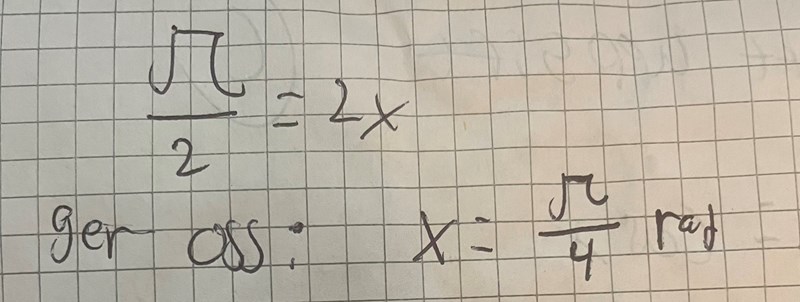 π/2 = 2x
ger oss: x = π/4 rad